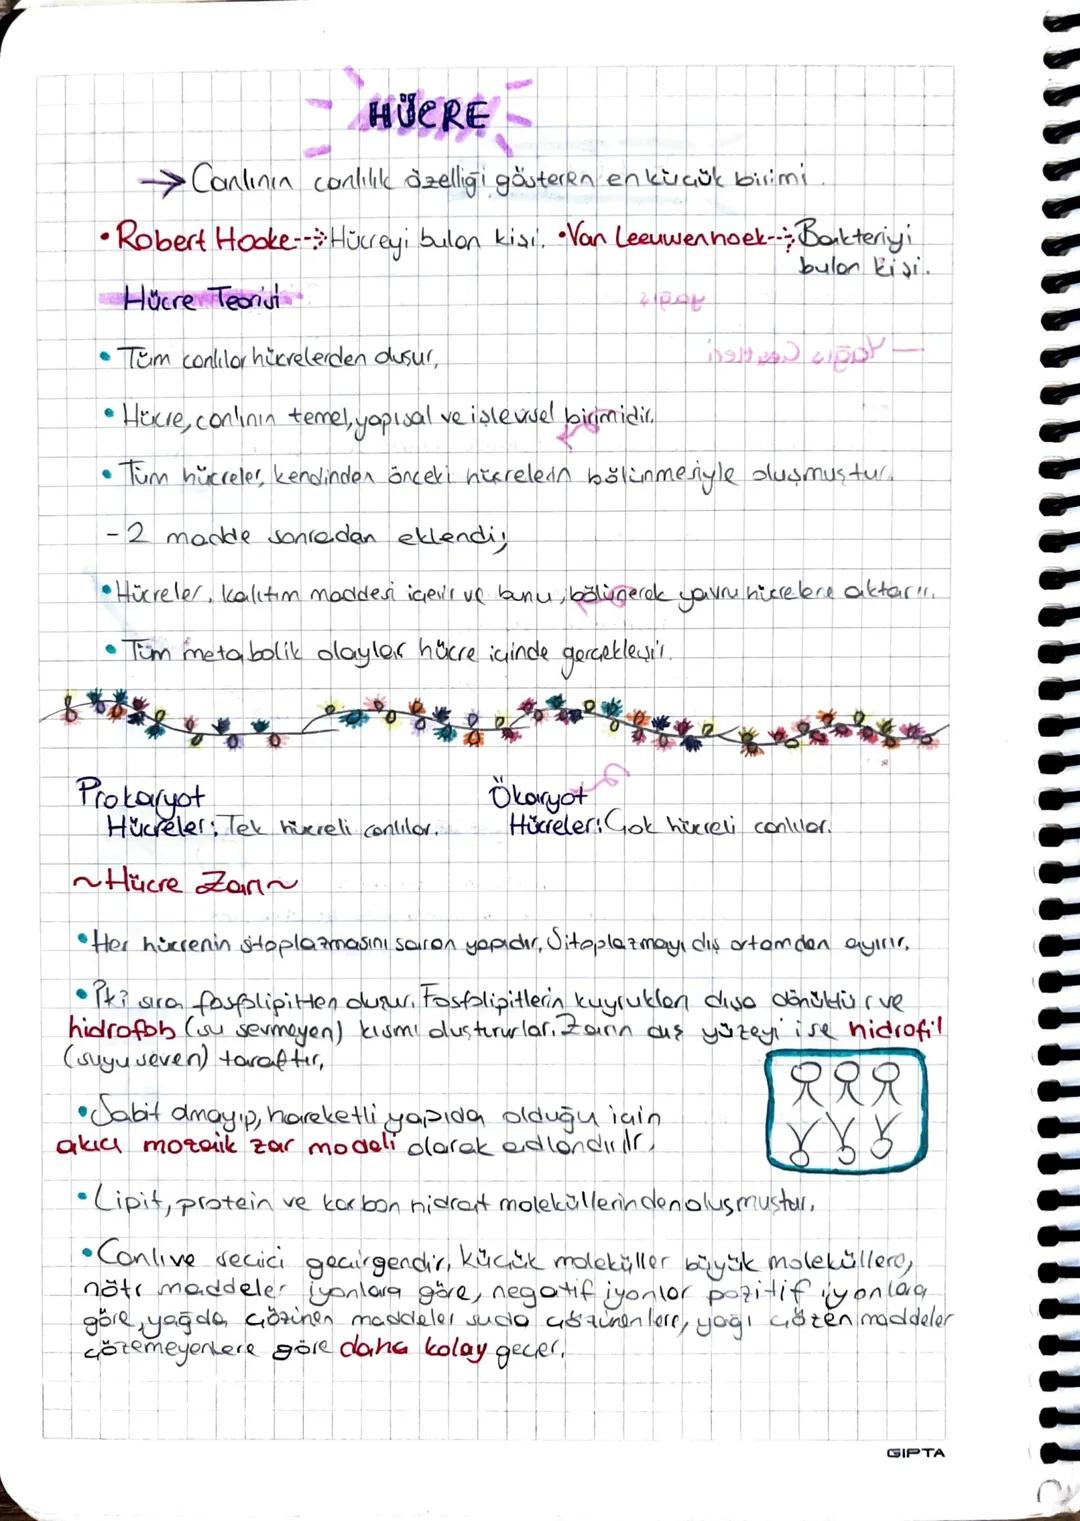 HÜCRE
→ Canlının canlılık özelliği gösteren en küçük birimi.
• Robert Hooke--> Hücreyi bulan kişi. • Van Leeuwenhoek--> Bakteriyi
bulan kişi.
Hücre Teorisi
• Tüm canlılar hücrelerden oluşur.
• Hücre, canlının temel, yapısal ve işlevsel birimidir.
• Tüm hücreler, kendinden önceki hücrelerin bölünmesiyle oluşmuştur.
- 2 madde sonradan eklendi;
• Hücreler, kalıtım maddesi içerir ve bunu, bölünerek yavru hücrelere aktarır.
• Tüm metabolik olaylar hücre içinde gerçekleşir.
Prokaryot Ökaryot
Hücreler: Tek hücreli canlılar. Hücreler: Çok hücreli canlılar.
~Hücre Zarı~
• Her hücrenin sitoplazmasını saran yapıdır. Sitoplazmayı dış ortamdan ayırır.
• İki sıra fosfolipitten oluşur. Fosfolipitlerin kuyrukları dışa dönüktür ve
hidrofob (su sevmeyen) kısmı oluştururlar. Zarın dış yüzeyi ise hidrofil
(suyu seven) taraftır.
• Sabit olmayıp, hareketli yapıda olduğu için
akıcı mozaik zar modeli olarak adlandırılır.
• Lipit, protein ve karbon hidrat moleküllerinden oluşmuştur.
• Canlı ve seçici geçirgendir, küçük moleküller büyük moleküllere,
nötr maddeler iyonlara göre, negatif iyonlar pozitif iyonlara
göre, yağda çözünen maddeler suda çözünenlere, yağı çözen maddeler
çözemeyenlere göre daha kolay geçer.
GIPTA